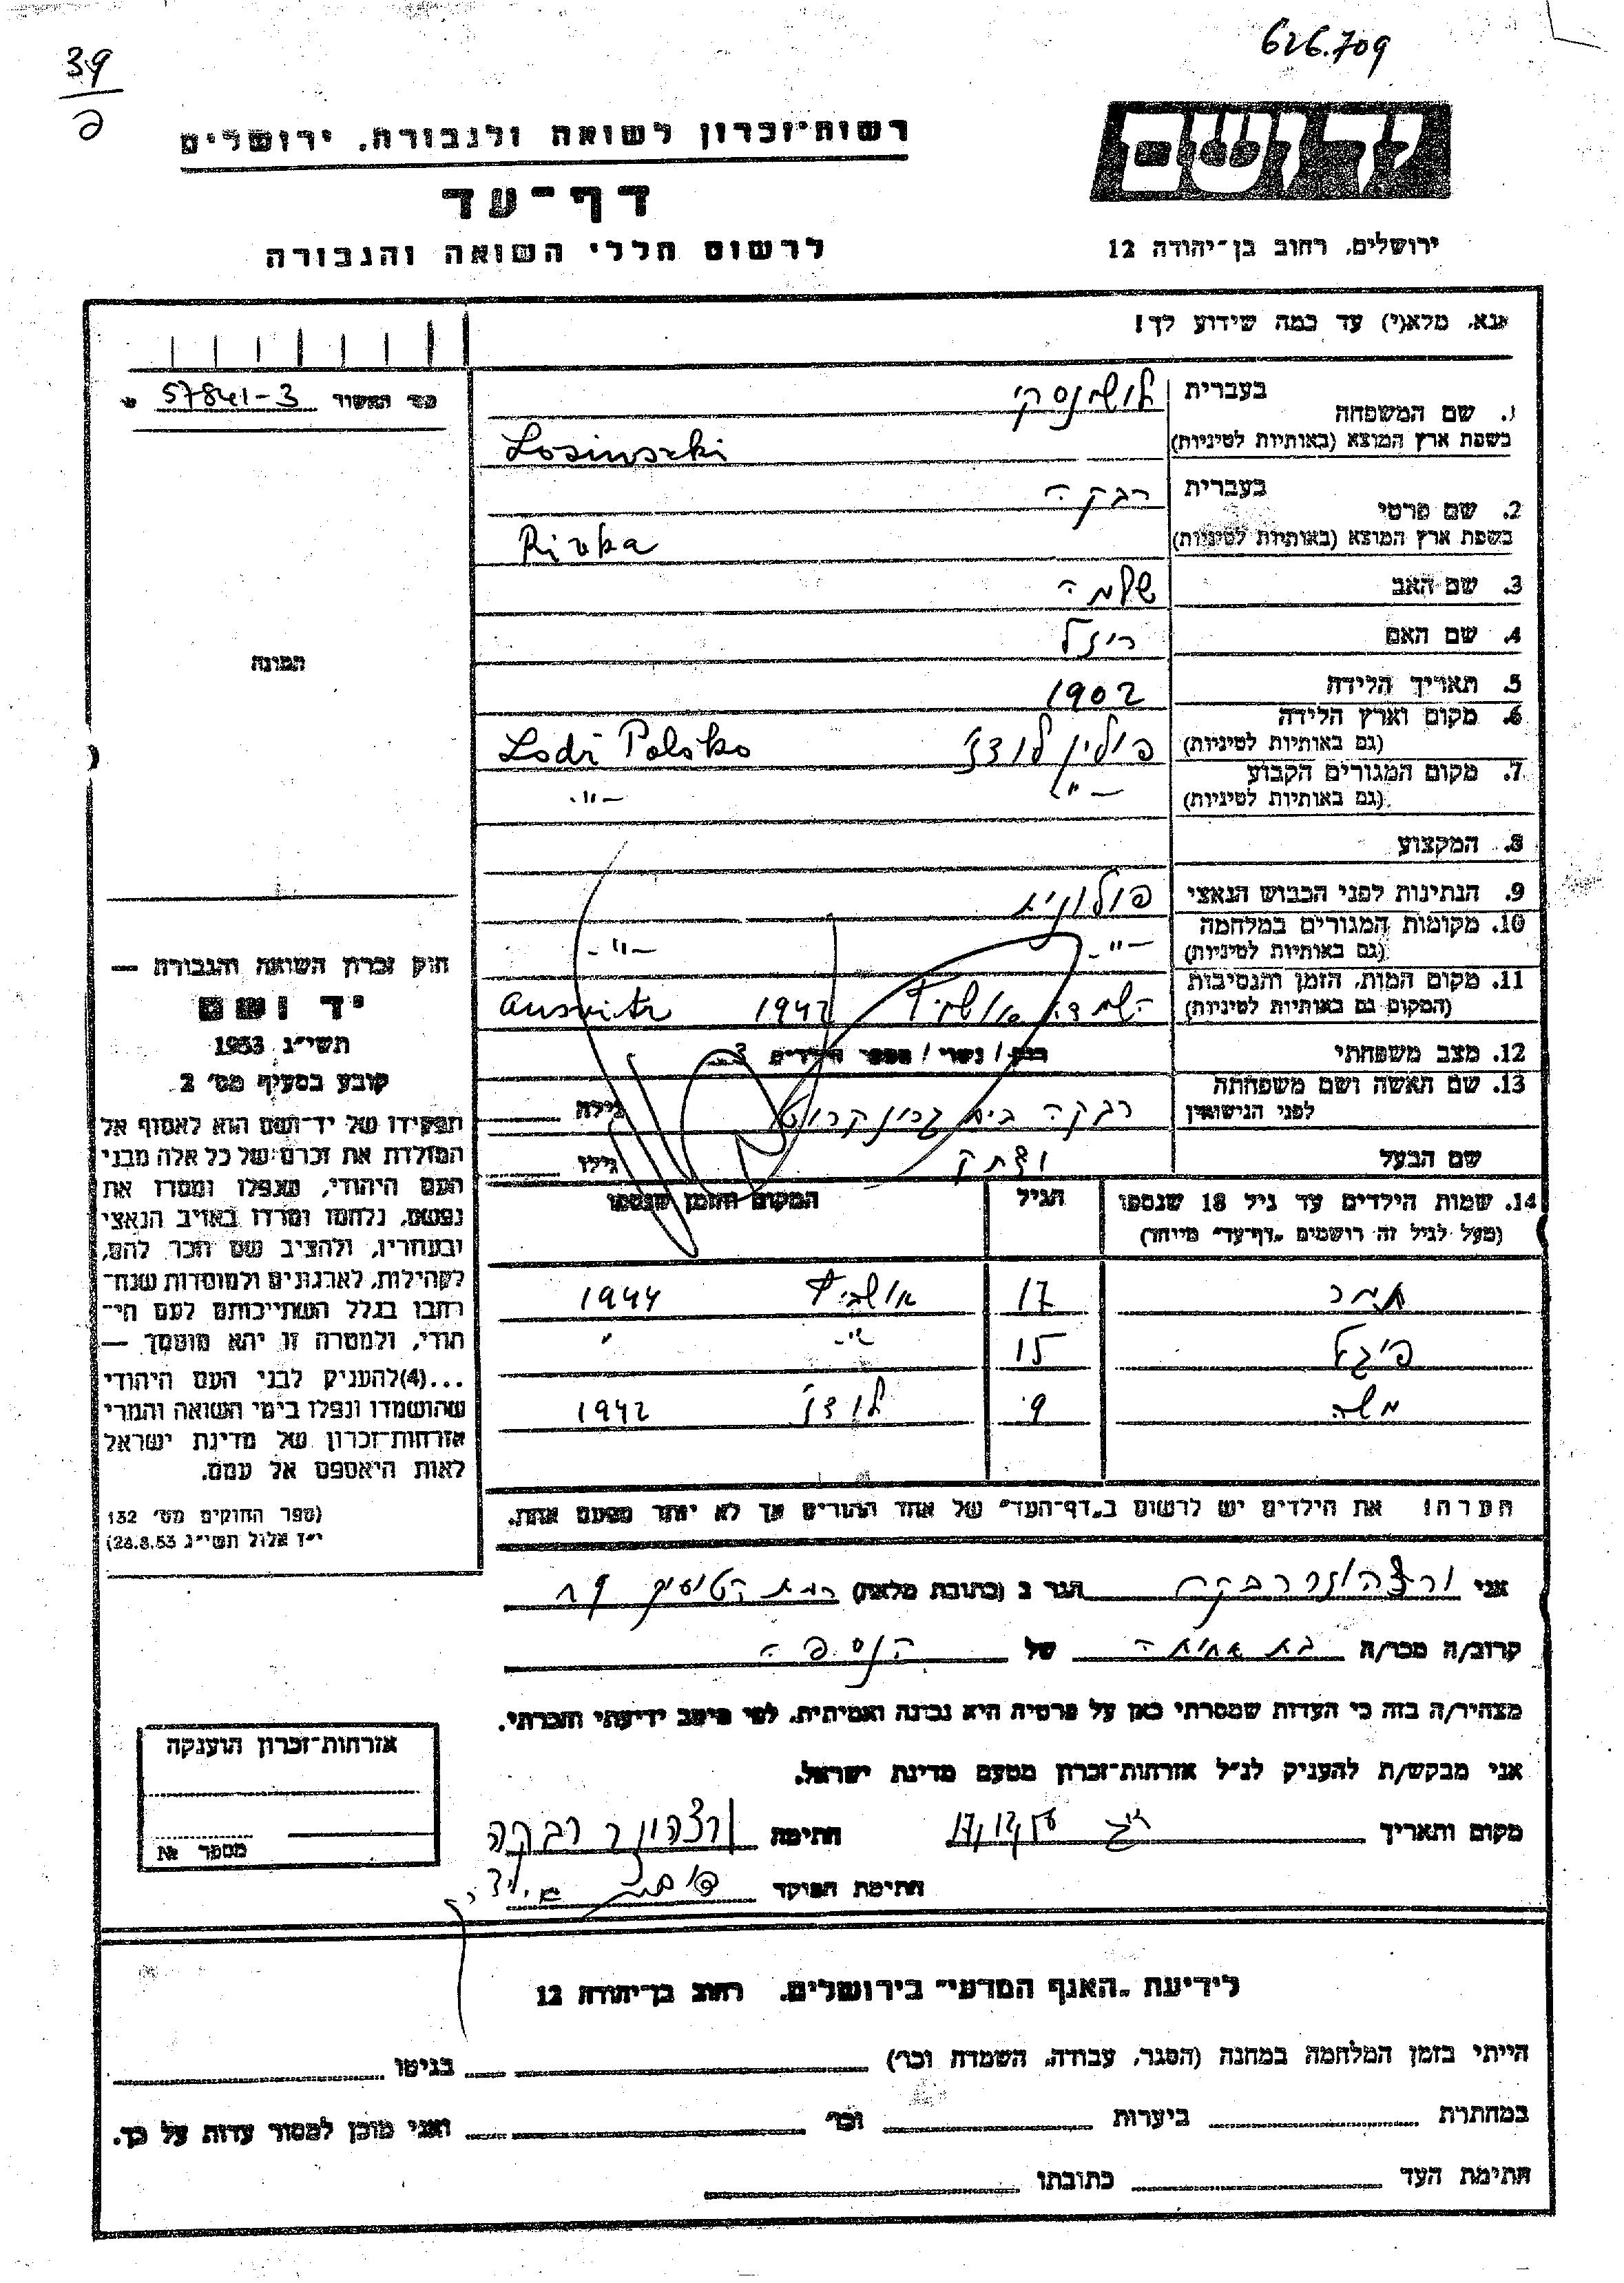 626.709
39
ל
יד ושם
רשות־זכרון לשואה ולגבורה, ירושלים
דף־עד
לרשום חללי השואה והגבורה
ירושלים, רחוב בן־יהודה 12
אנא, מלא(י) עד כמה שידוע לך!
57841-3
1. שם המשפחה בעברית לושינסקי
בשפת ארץ המוצא (באותיות לטיניות) Losinszki
2. שם פרטי בעברית רבקה
בשפת ארץ המוצא (באותיות לטיניות) Rivka
3. שם האב שלמה
4. שם האם רייזל
5. תאריך הלידה 1902
6. מקום וארץ הלידה פולין לודז' Lodz Polsko
(גם באותיות לטיניות)
7. מקום המגורים הקבוע -"- -"-
(גם באותיות לטיניות)
8. המקצוע
9. הנתינות לפני הכבוש הנאצי פולונית
10. מקומות המגורים במלחמה -"- -"-
(גם באותיות לטיניות)
11. מקום המות, הזמן והנסיבות 1942 Ausvitz
(המקום גם באותיות לטיניות)
12. מצב משפחתי רווק / נשוי / מספר הילדים 3
13. שם האשה ושם משפחתה רבקה בית גילה
לפני הנישואין
שם הבעל יצחק גילו
14. שמות הילדים עד גיל 18 שנספו הגיל המקום והזמן שנספו
(מעל לגיל זה רושמים "דף־עד" מיוחד)
תמר 17 אושביץ 1944
פייגל 15 -"- "
משה 9 לודז' 1942
הערה! את הילדים יש לרשום ב"דף־העד" של אחד ההורים אך לא יותר מפעם אחת.
התמונה
חוק זכרון השואה והגבורה —
יד ושם
תשי"ג 1953
קובע בסעיף מס' 2
תפקידו של יד־ושם הוא לאסוף אל
המולדת את זכרם של כל אלה מבני
העם היהודי, שנפלו ומסרו את
נפשם, נלחמו ומרדו באויב הנאצי
ובעוזריו, ולהציב שם וזכר להם,
לקהילות, לארגונים ולמוסדות שנח־
רבו בגלל השתייכותם לעם הי־
הודי, ולמטרה זו יהא מוסמך —
...(4) להעניק לבני העם היהודי
שהושמדו ונפלו בימי השואה והמרי
אזרחות־זכרון של מדינת ישראל
לאות היאספם אל עמם.
(ספר החוקים מס' 132
י"ז אלול תשי"ג 28.8.53)
אני רבקה הגר ב (כתובת מלאה)
קרוב/ה מכר/ה בת אחותה של הנספה
מצהיר/ה בזה כי העדות שמסרתי כאן על פרטיה היא נכונה ואמיתית, לפי מיטב ידיעתי והכרתי.
אני מבקש/ת להעניק לנ"ל אזרחות־זכרון מטעם מדינת ישראל.
מקום ותאריך חתימה רבקה
חתימת הפוקד
אזרחות־זכרון הוענקה
מספר №
לידיעת "האגף המדעי" בירושלים, רחוב בן־יהודה 12
הייתי בזמן המלחמה במחנה (הסגר, עבודה, השמדה וכו') בגיטו
במחתרת ביערות וכו' ואני מוכן למסור עדות על כך.
חתימת העד כתובתו